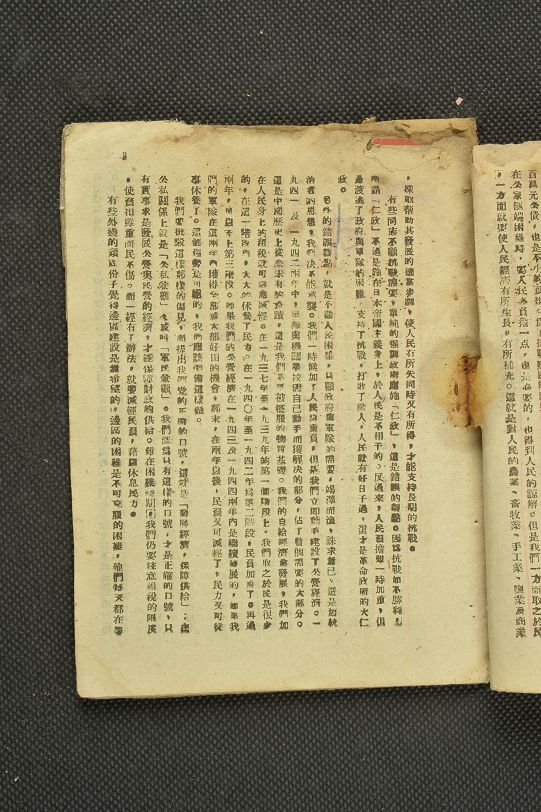 百萬元公債，也是不小的負擔。
在公家極端困難時，要人民多負擔一點，也是必要的，也得到人民的諒解。但是我們一方面取之於民
，一方面就要使人民經濟有所生長，有所補充。這就是對人民的農業、畜牧業、手工業、鹽業及商業
2
，採取幫助其發展的適當步驟，使人民有所失同時又有所得，才能支持長期的抗戰。
有些同志不顧抗戰需要，單純的强調政府應施「仁政」，這是錯誤的觀點。因爲抗戰如不勝利，
所謂「仁政」不過是施在日本帝國主義身上，於人民是不相干的。反過來，人民負擔雖一時加重，但
是渡過了政府與軍隊的困難，支持了抗戰，打敗了敵人，人民就有好日子過，這才是革命政府的大仁
政。
另外的錯誤觀點，就是不顧人民困難，只顧政府與軍隊的需要，竭澤而漁，誅求無已。這是
的思想，我們決不能承襲。我們一時候加了人民的重負，但是我們立即動手建設了公營經濟。一
九四一及一九四二兩年中，軍隊與機關學校因自己動手而獲解決的部分，佔了整個需要的大部分。
這是中國歷史上從來未有的奇蹟，這是我們不可被征服的物質基礎。我們的自給經濟愈發展，我們加
在人民身上的租稅就可以愈減輕。在一九三七年至一九三九年的第一個階段上，我們取之於民是很少
的，在這一階段內，大大的休養了民力。在一九四〇年至一九四二年爲第二階段，民負加重了。再過
兩年，可以走上第三階段。如果我們的公營經濟在一九四三及一九四四兩年內是繼續發展的，如果我
們的軍隊在這兩年內獲得全部或大部好田的機會，那末，在兩年以後，民負又可減輕了，民力又可從
事休養了。這個趨勢是可能的，我們應該準備這樣做。
我們要批駁這樣那樣的偏見，而提出我們黨的正確的口號，這就是「發展經濟，保障供給」；在
公私關係上說，就是「公私兼顧」，或叫「軍民兼顧」。我們認爲只有這樣的口號，才是正確的口號，只
有實事求是發展公營與民營的經濟，才能保障財政的供給。雖在困難時期，我們仍要注意租稅的限度
，使負担雖重而民不傷。而一經有了辦法，就要減輕民負，藉以休息民力。
有些外邊的頑固份子覺得邊區建設是無希望的，邊區的困難是不可克服的困難，他們每天都在等